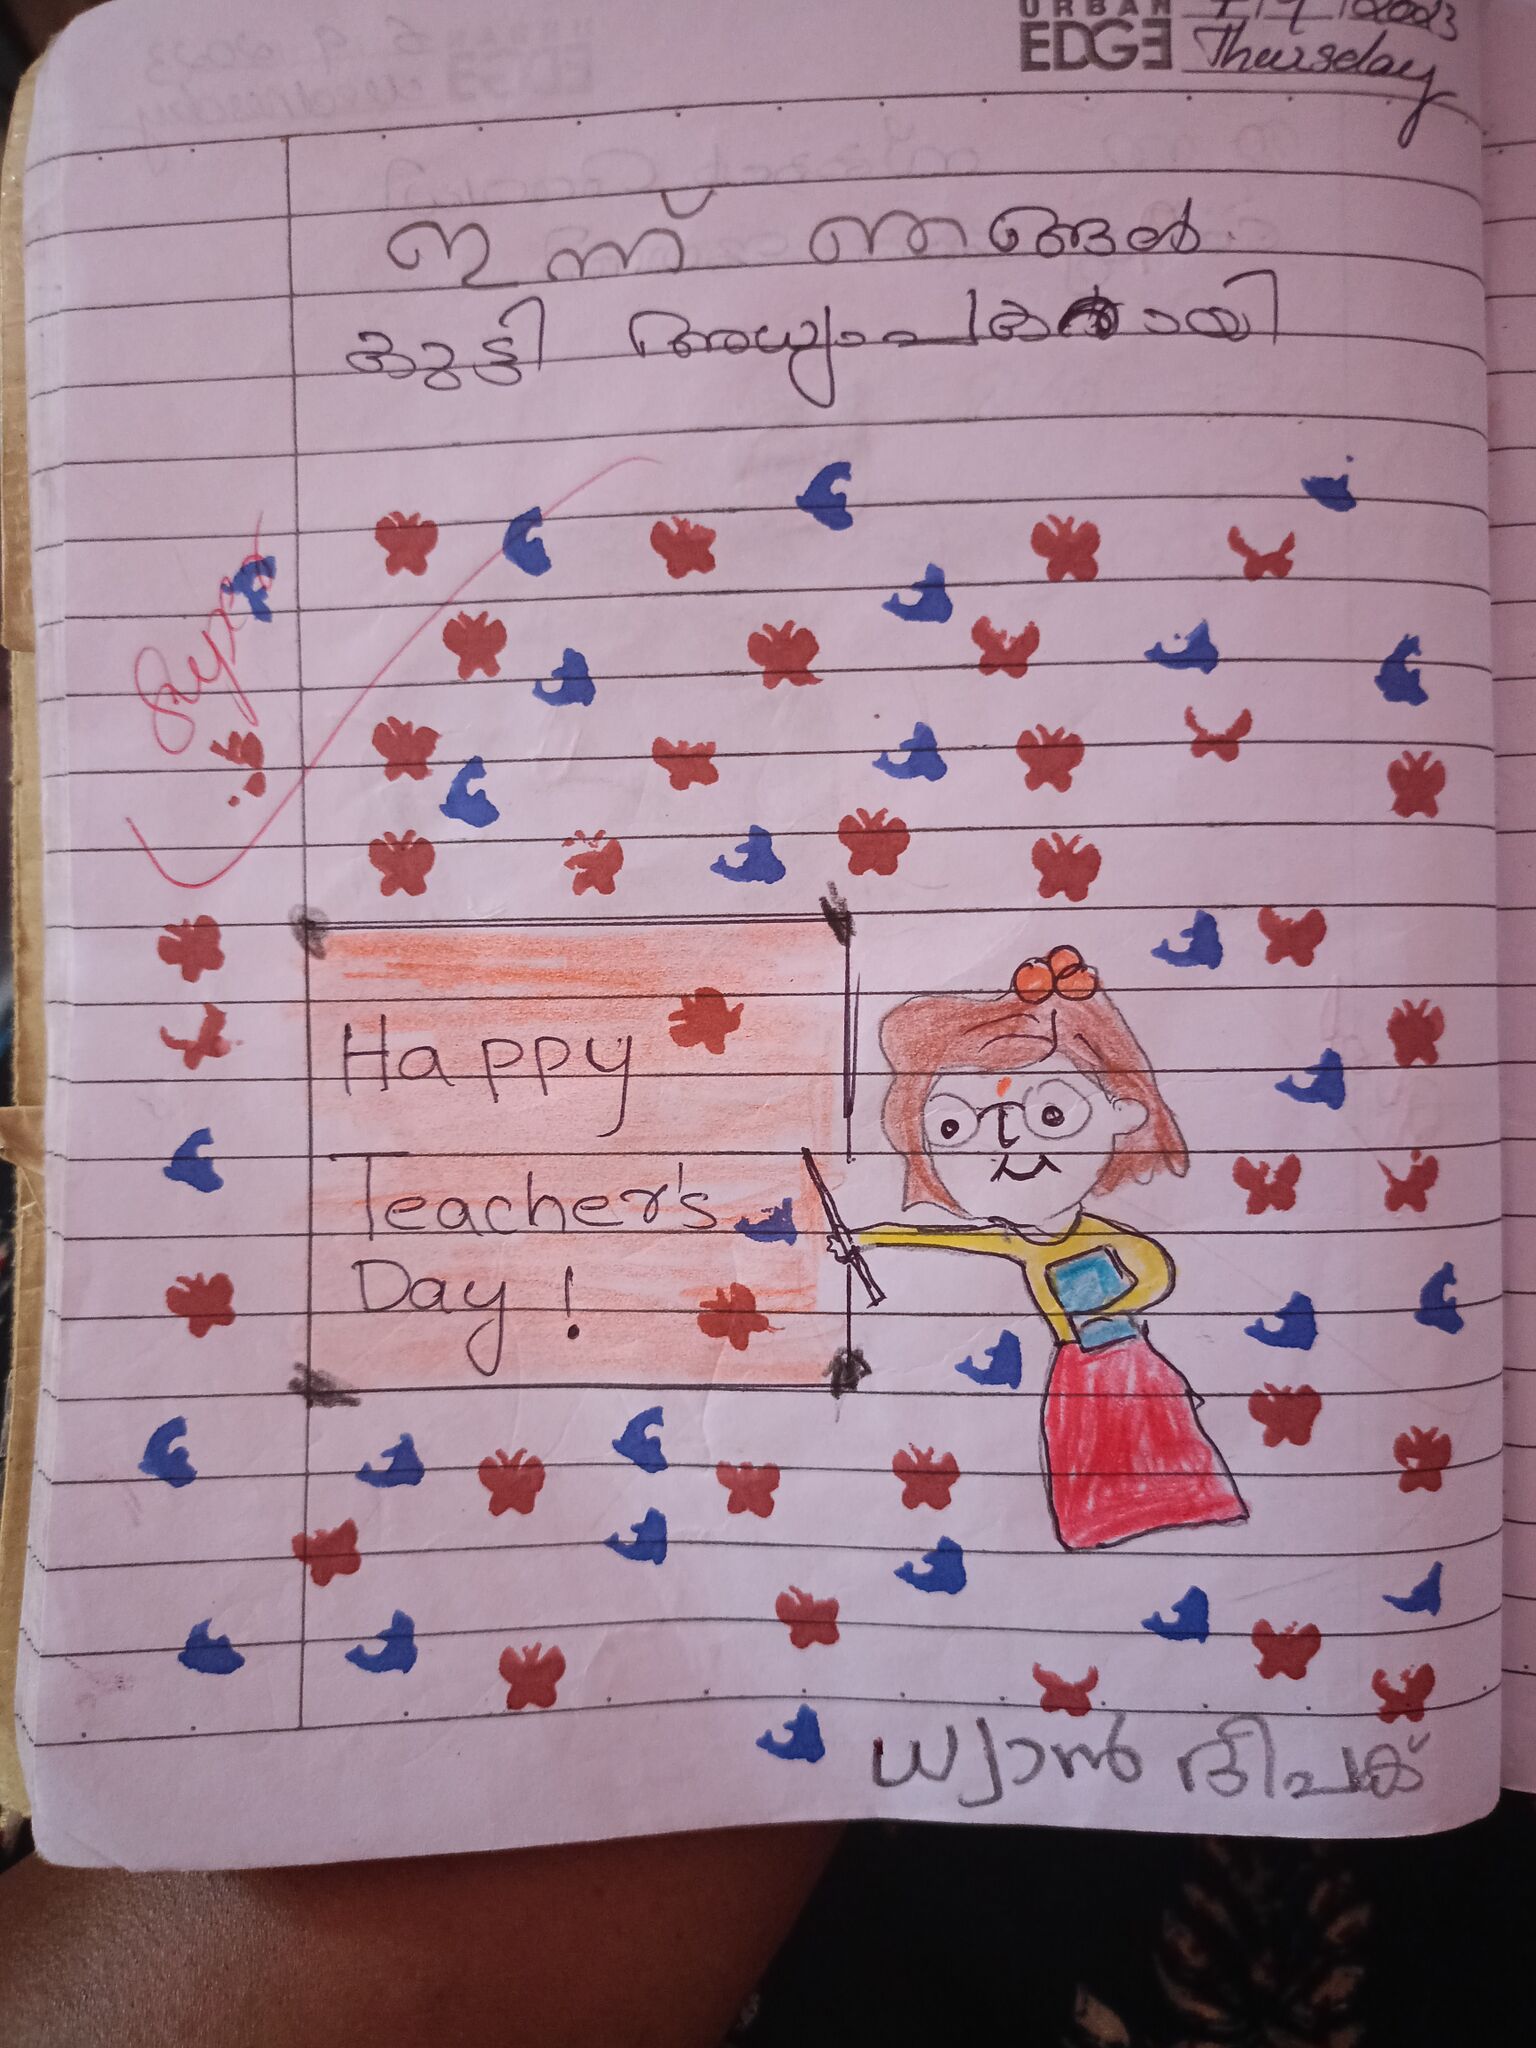 URBAN
EDGE
7/9/2023
Thursday
ഇന്ന് ഞങ്ങൾ
കുട്ടി അധ്യാപകരായി
Super
Happy
Teacher's
Day!
ധ്യാൻ ദീപക്